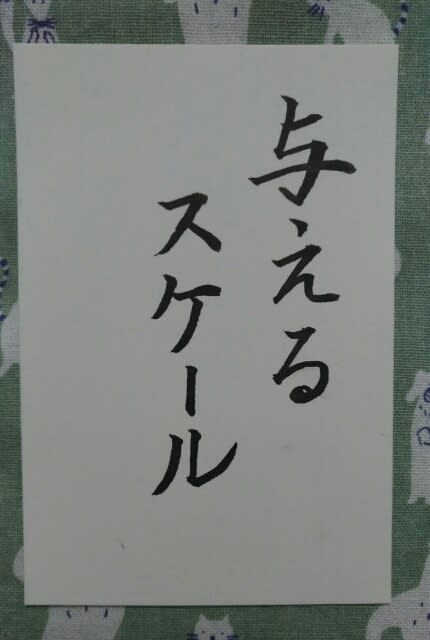 与える
スケール